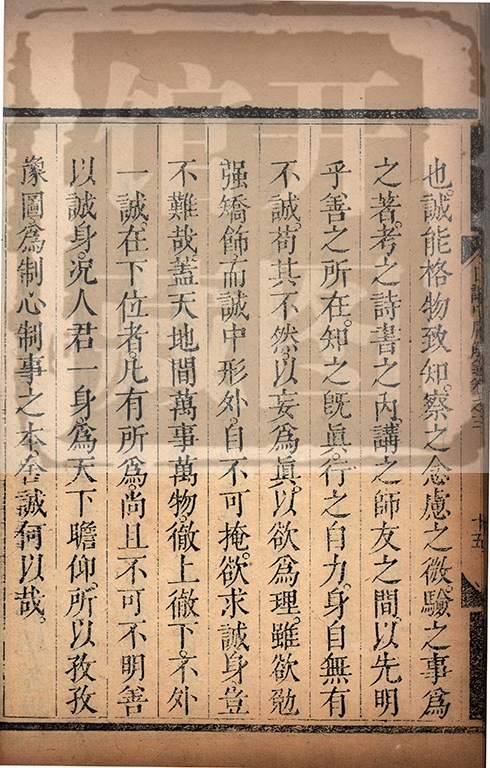 也。誠能格物致知。察之念慮之微。驗之事爲
之著。考之詩書之內。講之師友之間。以先明
乎善之所在。知之旣眞。行之自力。身自無有
不誠。苟其不然。以妄爲眞。以欲爲理。雖欲勉
强矯飾。而誠中形外。自不可掩。欲求誠身。豈
不難哉。蓋天地間萬事萬物。徹上徹下。不外
一誠。在下位者。凡有所爲。尚且不可不明善
以誠身。況人君一身。爲天下瞻仰。所以孜孜
豫圖。爲制心制事之本。舍誠何以哉。
十五